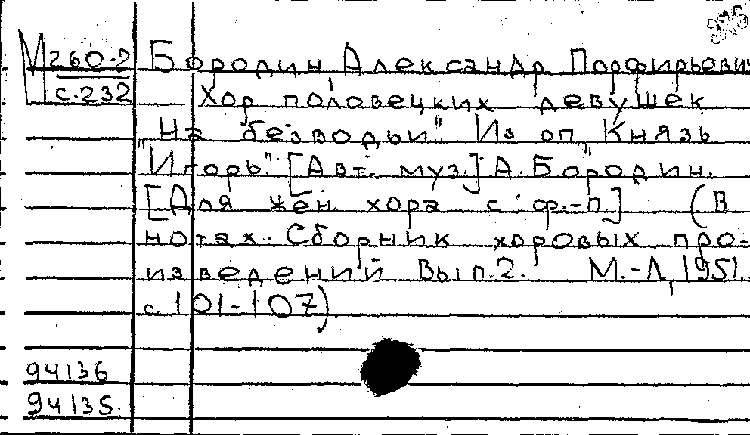 М260-2 Бородин Александр Порфирьевич
с.232 Хор половецких девушек
"На безводьи" Из оп. "Князь
Игорь". [Авт. муз.] А. Бородин.
[Для жен. хора с ф.-п.] (В
нотах. Сборник хоровых про-
изведений Вып.2. М.-Л, 1951.
с. 101-107)
94136
94135